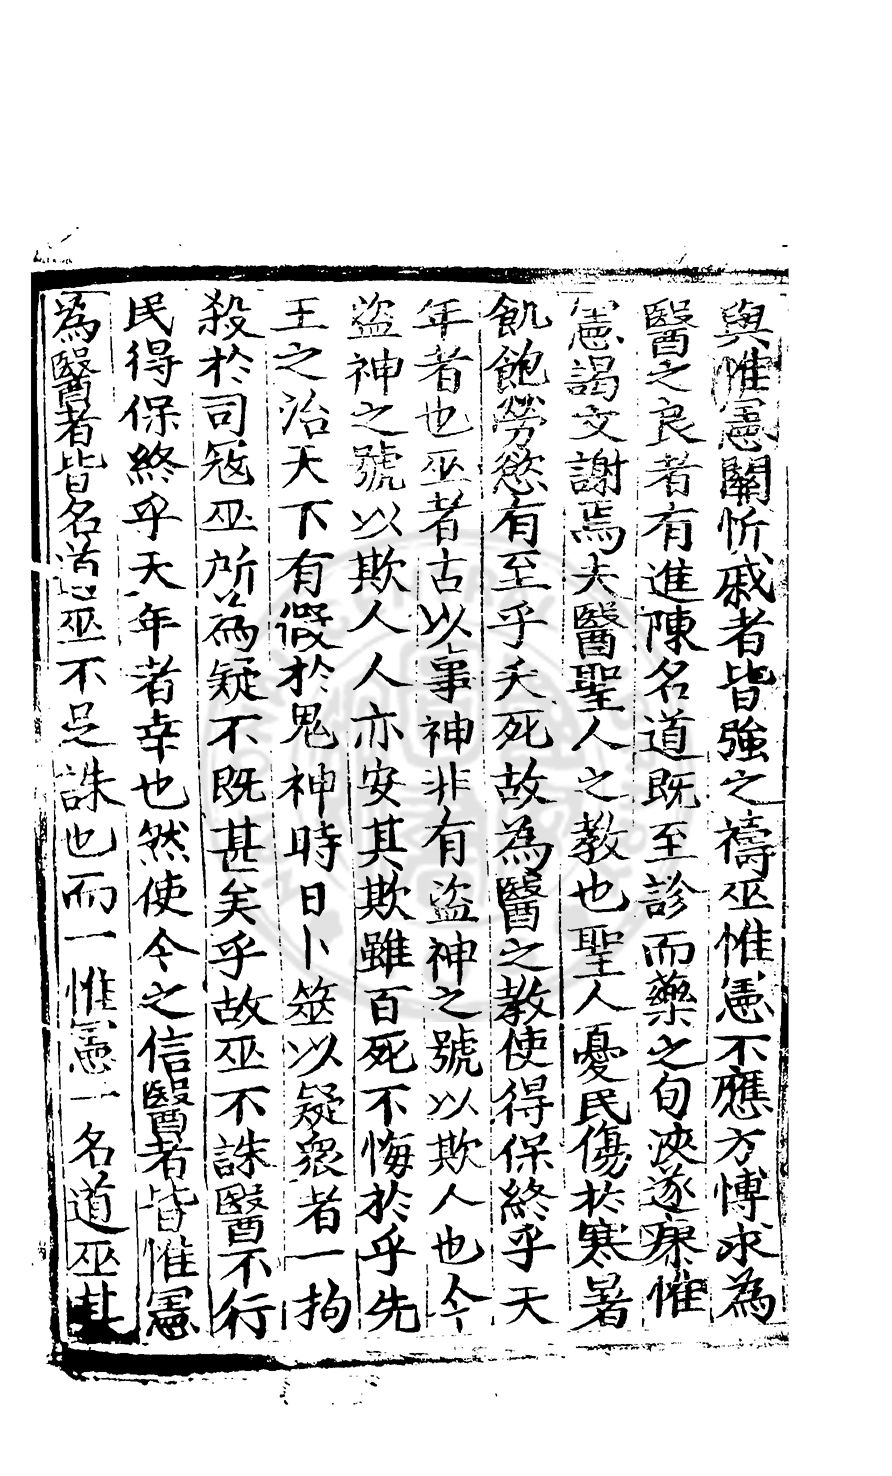 與惟憲關忻戚者皆強之禱巫惟憲不應方愽求為
醫之良者有進陳名道既至診而藥之旬浹遂瘳惟
憲謁文謝焉夫醫聖人之教也聖人憂民傷於寒暑
飢飽勞慾有至乎夭死故為醫之教使得保終乎天
年者也巫者古以事神非有盜神之號以欺人也今
盜神之號以欺人人亦安其欺雖百死不悔於乎先
王之治天下有假於鬼神時日卜筮以疑衆者一拘
殺於司冦巫所為疑不既甚矣乎故巫不誅醫不行
民得保終乎天年者幸也然使今之信醫者皆惟憲
為醫者皆名道巫不足誅也而一惟憲一名道巫其